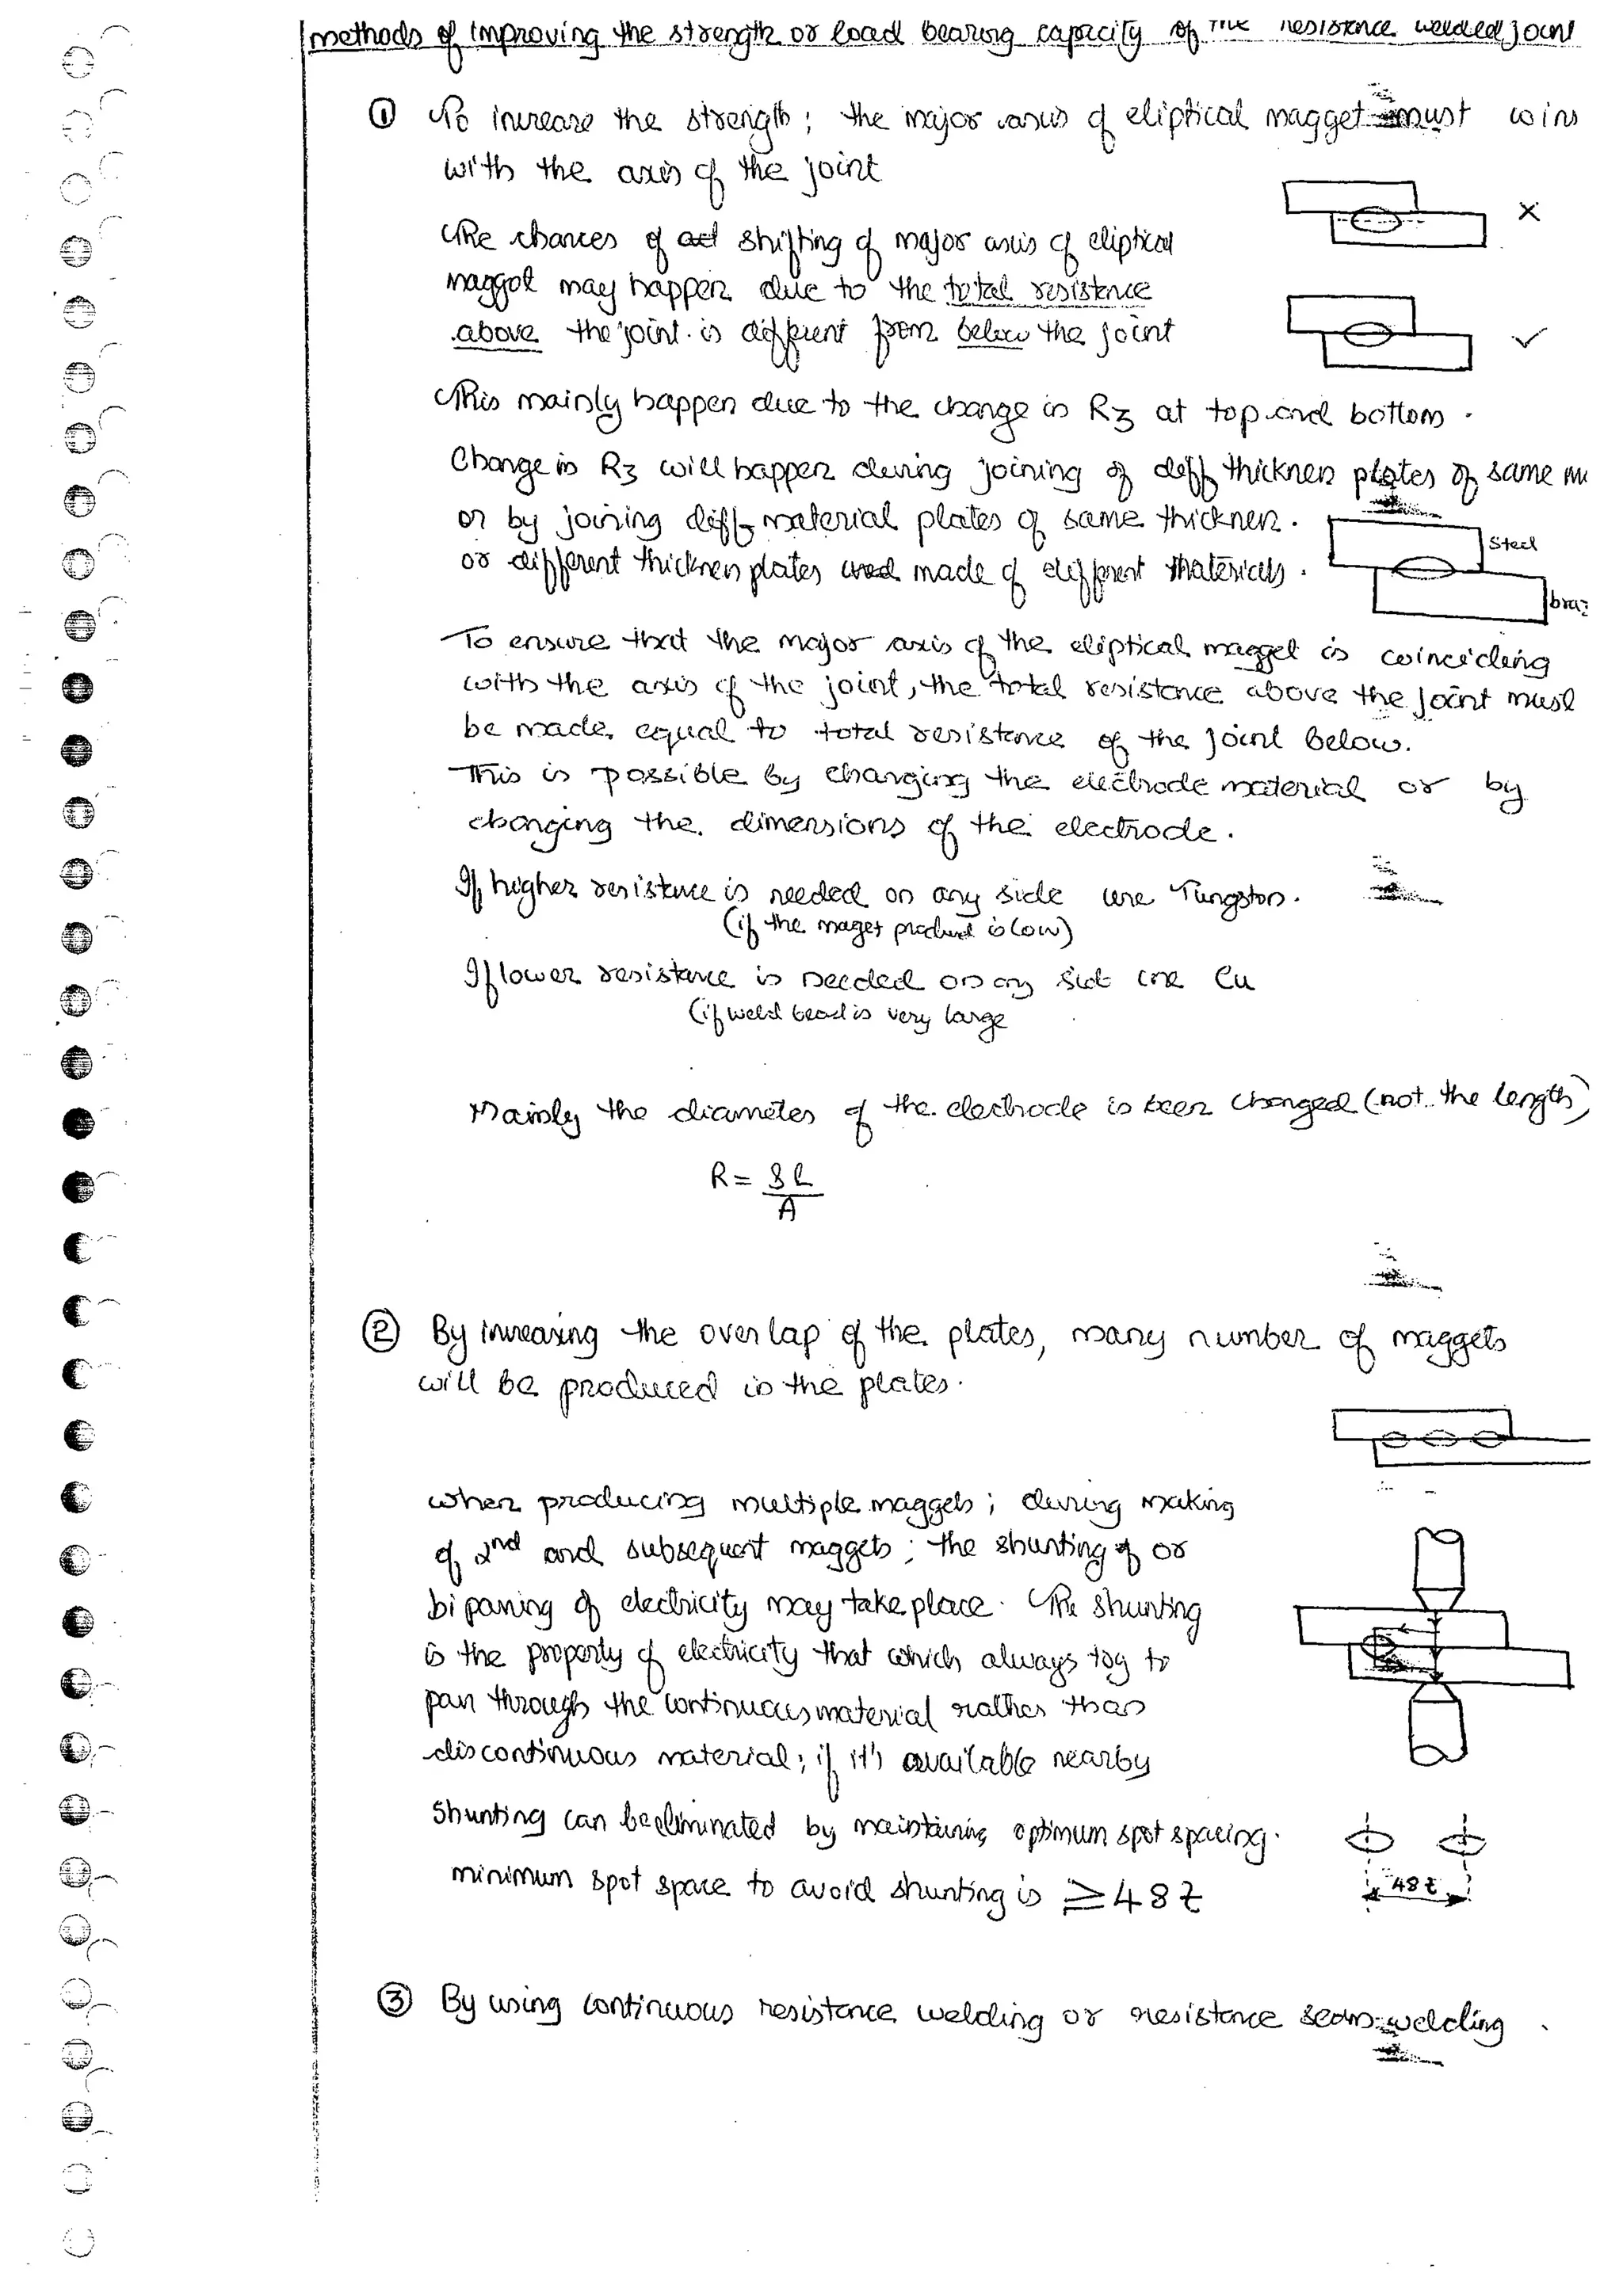 methods of improving the strength or load bearing capacity of the resistence welded joint
① To increase the strength; the major axis of eliptical magget must coins
with the axis of the joint
The chances of shifting of major axis of eliptical
maggot may happen due to the total resistence
above the joint is different from below the joint
This mainly happen due to the change in R3 at top and bottom.
Change in R3 will happen during joining of deff thickness plates of same
or by joining diff material plates of same thickness.
or different thickness plates made of different materials.
Steel
To ensure that the major axis of the eliptical magget is coinciding
with the axis of the joint, the total resistance above the joint must
be made equal to total resistence of the joint below.
This is possible by changing the electrode material or by
changing the dimensions of the electrode.
If higher resistance is needed on any side use Tungston.
(if the magget product is low)
If lower resistance is needed on any side use Cu
(if weld bead is very large
Mainly the diameter of the electrode is been changed (not the length)
R = SL
A
② By increasing the overlap of the plates, many number of maggets
will be produced in the plates.
when producing multiple maggets; during making
of 2nd and subsequent maggets; the shunting of or
bipassing of electricity may take place. The shunting
is the property of electricity that which always try to
pass through the continuous material rather than
discontinuous material; if it's available nearby
Shunting can be eliminated by maintaining optimum spot spacing.
minimum spot space to avoid shunting is ≥ 48t
48t
③ By using continuous resistence welding or resistence seam welding.